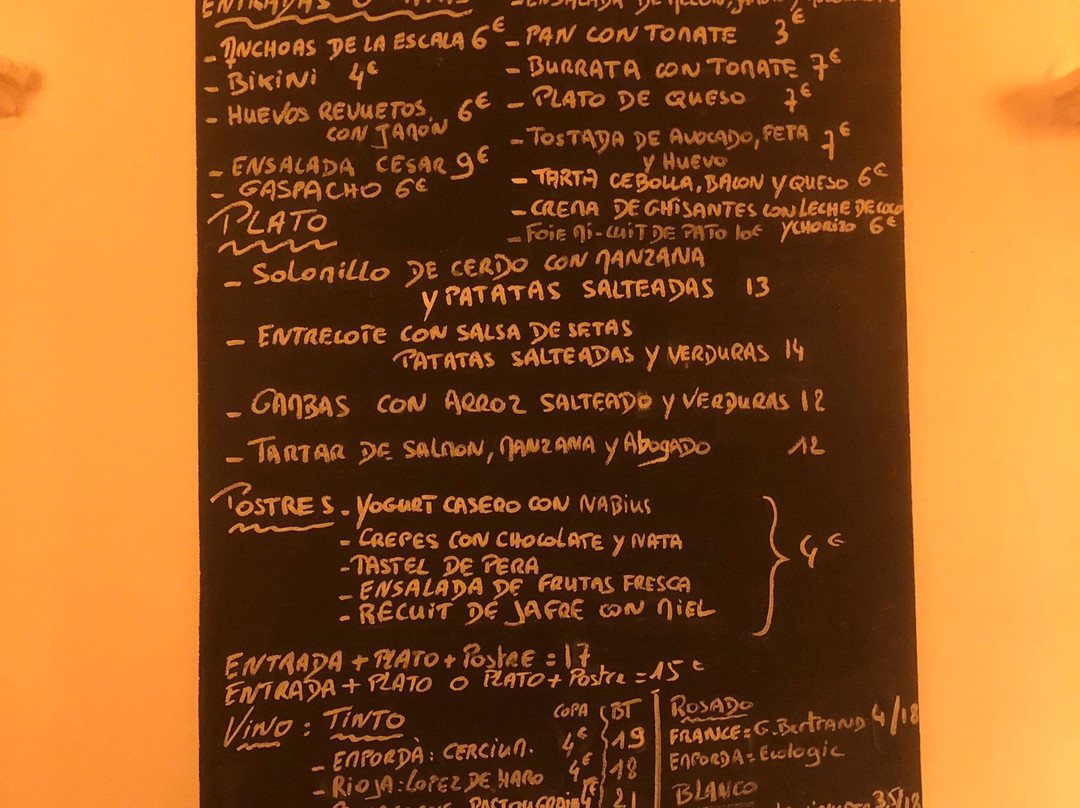 ENTRADAS O TAPAS
- ANCHOAS DE LA ESCALA 6€
- BIKINI 4€
- HUEVOS REVUETOS 6€
CON JAMON
- ENSALADA CESAR 9€
- GASPACHO 6€
- PAN CON TOMATE 3€
- BURRATA CON TOMATE 7€
- PLATO DE QUESO 7€
- TOSTADA DE AVOCADO, FETA 7€
Y HUEVO
- TARTA CEBOLLA, BACON Y QUESO 6€
- CREMA DE GHISANTES CON LECHE DE COCO
- FOIE MI-CUIT DE PATO 10€ Y CHORIZO 6€
PLATO
- SOLOMILLO DE CERDO CON MANZANA
Y PATATAS SALTEADAS 13
- ENTRECOTE CON SALSA DE SETAS
PATATAS SALTEADAS Y VERDURAS 14
- GAMBAS CON ARROZ SALTEADO Y VERDURAS 12
- TARTAR DE SALMON, MANZANA Y Abogado 12
POSTRES - YOGURT CASERO CON NABIUS
- CREPES CON CHOCOLATE Y NATA
- PASTEL DE PERA
- ENSALADA DE FRUTAS FRESCA
- RECUIT DE JAFRE CON MIEL
4€
ENTRADA + PLATO + Postre = 17
ENTRADA + PLATO O PLATO + Postre = 15€
VINO : TINTO COPA BT
- EMPORDÀ : CERCIUM. 4€ 19
- RIOJA : LOPEZ DE HARO 4€ 18
21
ROSADO
FRANCE = G. Bertrand 4/18
EMPORDA = Ecologic
BLANCO
3,5/18